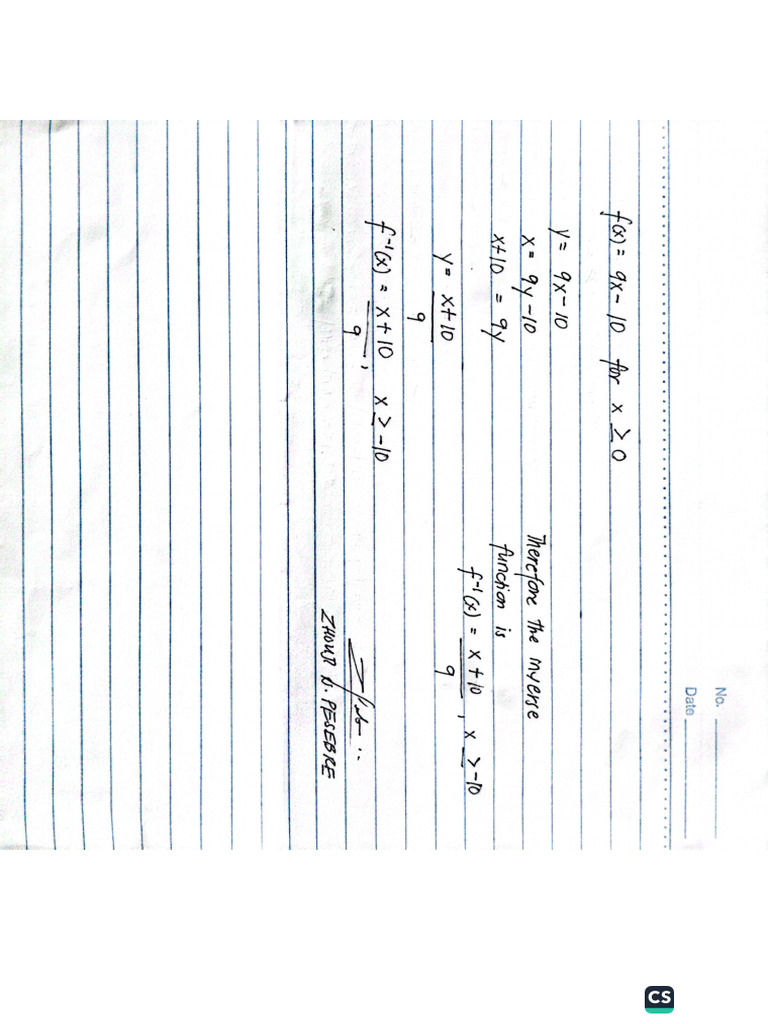 No.
Date
f(x) = 9x - 10 for x ≥ 0
y = 9x - 10
x = 9y - 10
x + 10 = 9y
y = x + 10
9
f⁻¹(x) = x + 10 , x ≥ -10
9
Therefore the inverse
function is
f⁻¹(x) = x + 10 , x ≥ -10
9
ZHOWJ N. PESEBRE
CS